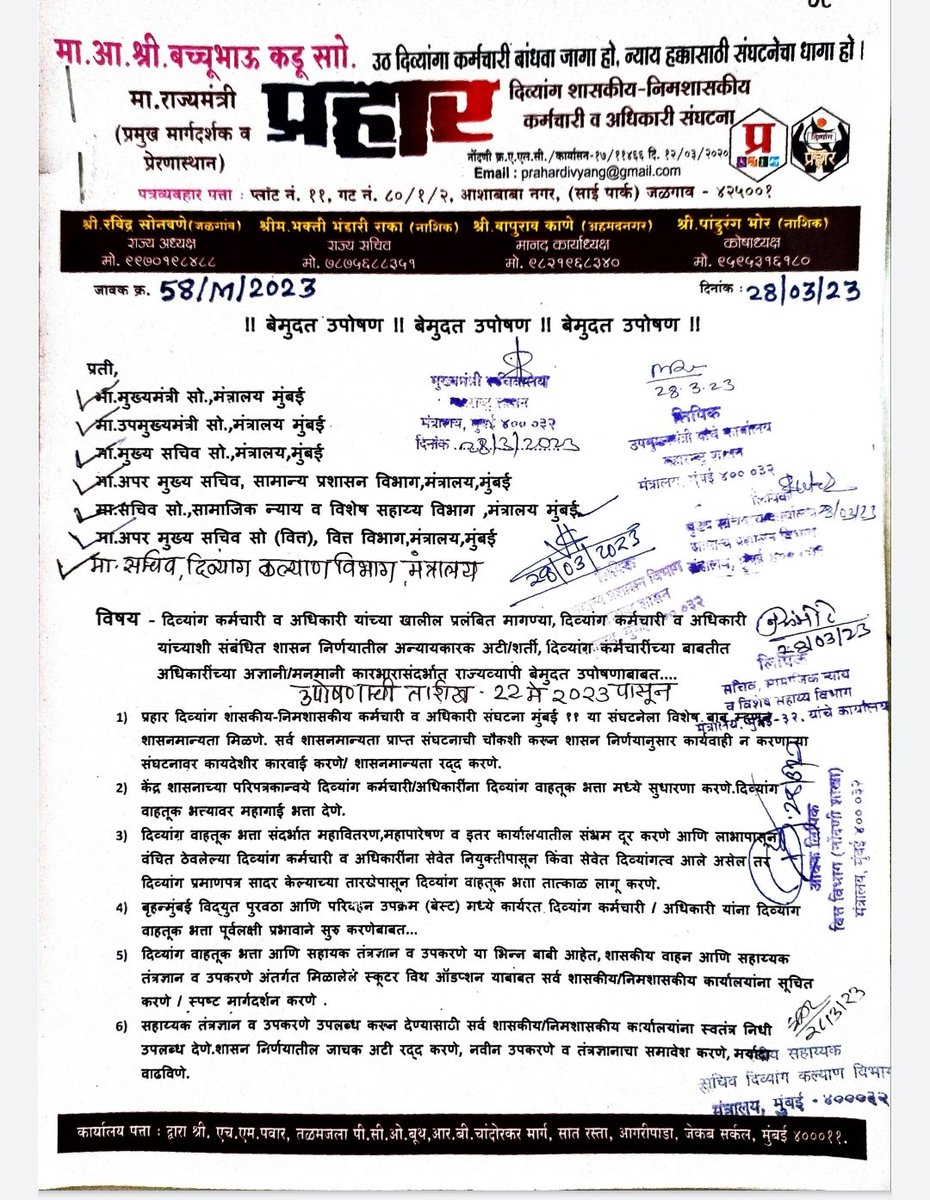 मा.आ.श्री.बच्चूभाऊ कडू साो. उठ दिव्यांगा कर्मचारी बांधवा जागा हो, न्याय हक्कासाठी संघटनेचा धागा हो।
मा.राज्यमंत्री
(प्रमुख मार्गदर्शक व
प्रेरणास्थान)
प्रहार
दिव्यांग शासकीय-निमशासकीय
कर्मचारी व अधिकारी संघटना
नोंदणी क्र.ए.एल.सी./कार्यासन-१७/११४६६ दि. १२/०३/२०२०
Email : prahardivyang@gmail.com
प्र
दिव्यांग
प्रहार
पत्रव्यवहार पत्ता : प्लांट नं. ११, गट नं. ८०/१/२, आशाबाबा नगर, (साई पार्क) जळगाव - ४२५००१
श्री.रविंद्र सोनवणे(जळगांव) श्रीम.भक्ती भंडारी राका (नाशिक) श्री.बापुराव काणे (अहमदनगर) श्री.पांडुरंग भोर (नाशिक)
राज्य अध्यक्ष राज्य सचिव मानद कार्याध्यक्ष कोषाध्यक्ष
मो. ९९७०१९८४८८ मो. ७८७५६८८३५१ मो. ९८२१९६८३४० मो. ९५९५३१६१८०
जावक क्र. 58/M/2023 दिनांक : 28/03/23
!! बेमुदत उपोषण !! बेमुदत उपोषण !! बेमुदत उपोषण !!
प्रती,
मा.मुख्यमंत्री सो.,मंत्रालय मुंबई
मा.उपमुख्यमंत्री सो.,मंत्रालय मुंबई
मा.मुख्य सचिव सो.,मंत्रालय,मुंबई
मा.अपर मुख्य सचिव, सामान्य प्रशासन विभाग,मंत्रालय,मुंबई
मा.सचिव सो.,सामाजिक न्याय व विशेष सहाय्य विभाग ,मंत्रालय मुंबई
मा.अपर मुख्य सचिव सो (वित्त), वित्त विभाग,मंत्रालय,मुंबई
मा. सचिव, दिव्यांग कल्याण विभाग, मंत्रालय
मुख्यमंत्री सचिवालय
महाराष्ट्र शासन
मंत्रालय, मुंबई ४०० ०३२
दिनांक 28/3/2023
28.3.23
लिपिक
उपमुख्यमंत्री यांचे कार्यालय
महाराष्ट्र शासन
मंत्रालय, मुंबई ४०० ०३२
लिपिक
28/03/23
28/03/2023
विषय - दिव्यांग कर्मचारी व अधिकारी यांच्या खालील प्रलंबित मागण्या, दिव्यांग कर्मचारी व अधिकारी
यांच्याशी संबंधित शासन निर्णयातील अन्यायकारक अटी/शर्ती, दिव्यांग कर्मचारींच्या बाबतीत
अधिकारींच्या अज्ञानी/मनमानी कारभारासंदर्भात राज्यव्यापी बेमुदत उपोषणाबाबत....
उपोषणाची तारीख - 22 मे 2023 पासून
28/03/23
लिपिक
सचिव, सामाजिक न्याय
व विशेष सहाय्य विभाग
मंत्रालय, मुंबई-३२. यांचे कार्यालय
1) प्रहार दिव्यांग शासकीय-निमशासकीय कर्मचारी व अधिकारी संघटना मुंबई ११ या संघटनेला विशेष बाब म्हणून
शासनमान्यता मिळणे. सर्व शासनमान्यता प्राप्त संघटनाची चौकशी करून शासन निर्णयानुसार कार्यवाही न करणाऱ्या
संघटनावर कायदेशीर कारवाई करणे/ शासनमान्यता रद्द करणे.
2) केंद्र शासनाच्या परिपत्रकान्वये दिव्यांग कर्मचारी/अधिकारींना दिव्यांग वाहतूक भत्ता मध्ये सुधारणा करणे.दिव्यांग
वाहतूक भत्त्यावर महागाई भत्ता देणे.
3) दिव्यांग वाहतूक भत्ता संदर्भात महावितरण,महापारेषण व इतर कार्यालयातील संभ्रम दूर करणे आणि लाभापासून
वंचित ठेवलेल्या दिव्यांग कर्मचारी व अधिकारींना सेवेत नियुक्तीपासून किंवा सेवेत दिव्यांगत्व आले असेल तर
दिव्यांग प्रमाणपत्र सादर केल्याच्या तारखेपासून दिव्यांग वाहतूक भत्ता तात्काळ लागू करणे.
4) बृहन्मुंबई विद्युत पुरवठा आणि परिवहन उपक्रम (बेस्ट) मध्ये कार्यरत दिव्यांग कर्मचारी / अधिकारी यांना दिव्यांग
वाहतूक भत्ता पूर्वलक्षी प्रभावाने सुरु करणेबाबत...
5) दिव्यांग वाहतूक भत्ता आणि सहायक तंत्रज्ञान व उपकरणे या भिन्न बाबी आहेत, शासकीय वाहन आणि सहाय्यक
तंत्रज्ञान व उपकरणे अंतर्गत मिळालेले स्कूटर विथ ऑडप्शन याबाबत सर्व शासकीय/निमशासकीय कार्यालयांना सूचित
करणे / स्पष्ट मार्गदर्शन करणे .
6) सहाय्यक तंत्रज्ञान व उपकरणे उपलब्ध करून देण्यासाठी सर्व शासकीय/निमशासकीय कार्यालयांना स्वतंत्र निधी
उपलब्ध देणे.शासन निर्णयातील जाचक अटी रद्द करणे, नवीन उपकरणे व तंत्रज्ञानाचा समावेश करणे, मर्यादा
वाढविणे.
आवक लिपिक
वित्त विभाग (नोंदणी शाखा)
मंत्रालय, मुंबई ४०० ०३२
स्वीय सहाय्यक
सचिव दिव्यांग कल्याण विभाग
मंत्रालय, मुंबई - ४०००३२
कार्यालय पत्ता : द्वारा श्री. एच.एम.पवार, तळमजला पी.सी.ओ.बूथ,आर.बी.चांदोरकर मार्ग, सात रस्ता, आगरीपाडा, जेकब सर्कल, मुंबई ४०००११.